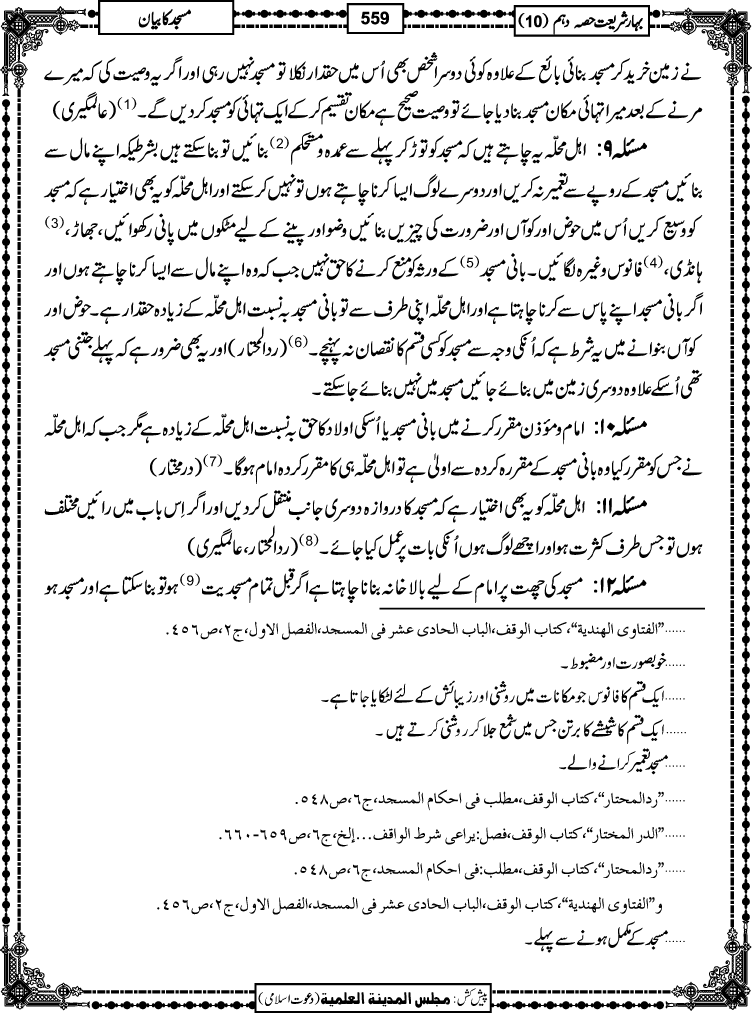 بہارِ شریعت حصہ دہم (10)
559
مسجد کا بیان
نے زمین خرید کر مسجد بنائی بائع کے علاوہ کوئی دوسرا شخص بھی اُس میں حقدار نکلا تو مسجد نہیں رہی اور اگر یہ وصیت کی کہ میرے
مرنے کے بعد میرا تہائی مکان مسجد بنا دیا جائے تو وصیت صحیح ہے مکان تقسیم کرکے ایک تہائی کو مسجد کر دیں گے۔(1) (عالمگیری)
مسئلہ ۹: اہل محلہ یہ چاہتے ہیں کہ مسجد کو توڑ کر پہلے سے عمدہ و مستحکم(2) بنائیں تو بنا سکتے ہیں بشرطیکہ اپنے مال سے
بنائیں مسجد کے روپے سے تعمیر نہ کریں اور دوسرے لوگ ایسا کرنا چاہتے ہوں تو نہیں کرسکتے اور اہل محلہ کو یہ بھی اختیار ہے کہ مسجد
کو وسیع کریں اُس میں حوض اور کوآں اور ضرورت کی چیزیں بنائیں وضو اور پینے کے لیے مٹکوں میں پانی رکھوائیں، جھاڑ،(3)
ہانڈی،(4) فانوس وغیرہ لگائیں۔ بانی مسجد(5) کے ورثہ کو منع کرنے کا حق نہیں جب کہ وہ اپنے مال سے ایسا کرنا چاہتے ہوں اور
اگر بانی مسجد اپنے پاس سے کرنا چاہتا ہے اور اہل محلہ اپنی طرف سے تو بانی مسجد بہ نسبت اہل محلہ کے زیادہ حقدار ہے۔ حوض اور
کوآں بنوانے میں یہ شرط ہے کہ اُنکی وجہ سے مسجد کو کسی قسم کا نقصان نہ پہنچے۔(6) (ردالمحتار) اور یہ بھی ضرور ہے کہ پہلے جتنی مسجد
تھی اُسکے علاوہ دوسری زمین میں بنائے جائیں مسجد میں نہیں بنائے جاسکتے۔
مسئلہ ۱۰: امام و مؤذن مقرر کرنے میں بانی مسجد یا اُسکی اولاد کا حق بہ نسبت اہل محلہ کے زیادہ ہے مگر جب کہ اہل محلہ
نے جس کو مقرر کیا وہ بانی مسجد کے مقررہ کردہ سے اولیٰ ہے تو اہل محلہ ہی کا مقرر کردہ امام ہوگا۔(7) (درمختار)
مسئلہ ۱۱: اہل محلہ کو یہ بھی اختیار ہے کہ مسجد کا دروازہ دوسری جانب منتقل کر دیں اور اگر اِس باب میں رائیں مختلف
ہوں تو جس طرف کثرت ہو اور اچھے لوگ ہوں اُنکی بات پر عمل کیا جائے۔(8) (ردالمحتار، عالمگیری)
مسئلہ ۱۲: مسجد کی چھت پر امام کے لیے بالا خانہ بنانا چاہتا ہے اگر قبل تمام مسجدیت(9) ہو تو بنا سکتا ہے اور مسجد ہو
......"الفتاوی الھندیة"، کتاب الوقف، الباب الحادی عشر فی المسجد، الفصل الاول، ج۲، ص۴۵۶.
......خوبصورت اور مضبوط۔
......ایک قسم کا فانوس جو مکانات میں روشنی اور زیبائش کے لئے لٹکایا جاتا ہے۔
......ایک قسم کا شیشے کا برتن جس میں شمع جلا کر روشنی کرتے ہیں۔
......مسجد تعمیر کرانے والے۔
......"ردالمحتار"، کتاب الوقف، مطلب فی احکام المسجد، ج۶، ص۵۴۸.
......"الدر المختار"، کتاب الوقف، فصل: یراعی شرط الواقف...إلخ، ج۶، ص۶۵۹-۶۶۰.
......"ردالمحتار"، کتاب الوقف، مطلب: فی احکام المسجد، ج۶، ص۵۴۸.
و"الفتاوی الھندیة"، کتاب الوقف، الباب الحادی عشر فی المسجد، الفصل الاول، ج۲، ص۴۵۶.
......مسجد کے مکمل ہونے سے پہلے۔
پیش کش: مجلس المدینة العلمیة (دعوت اسلامی)